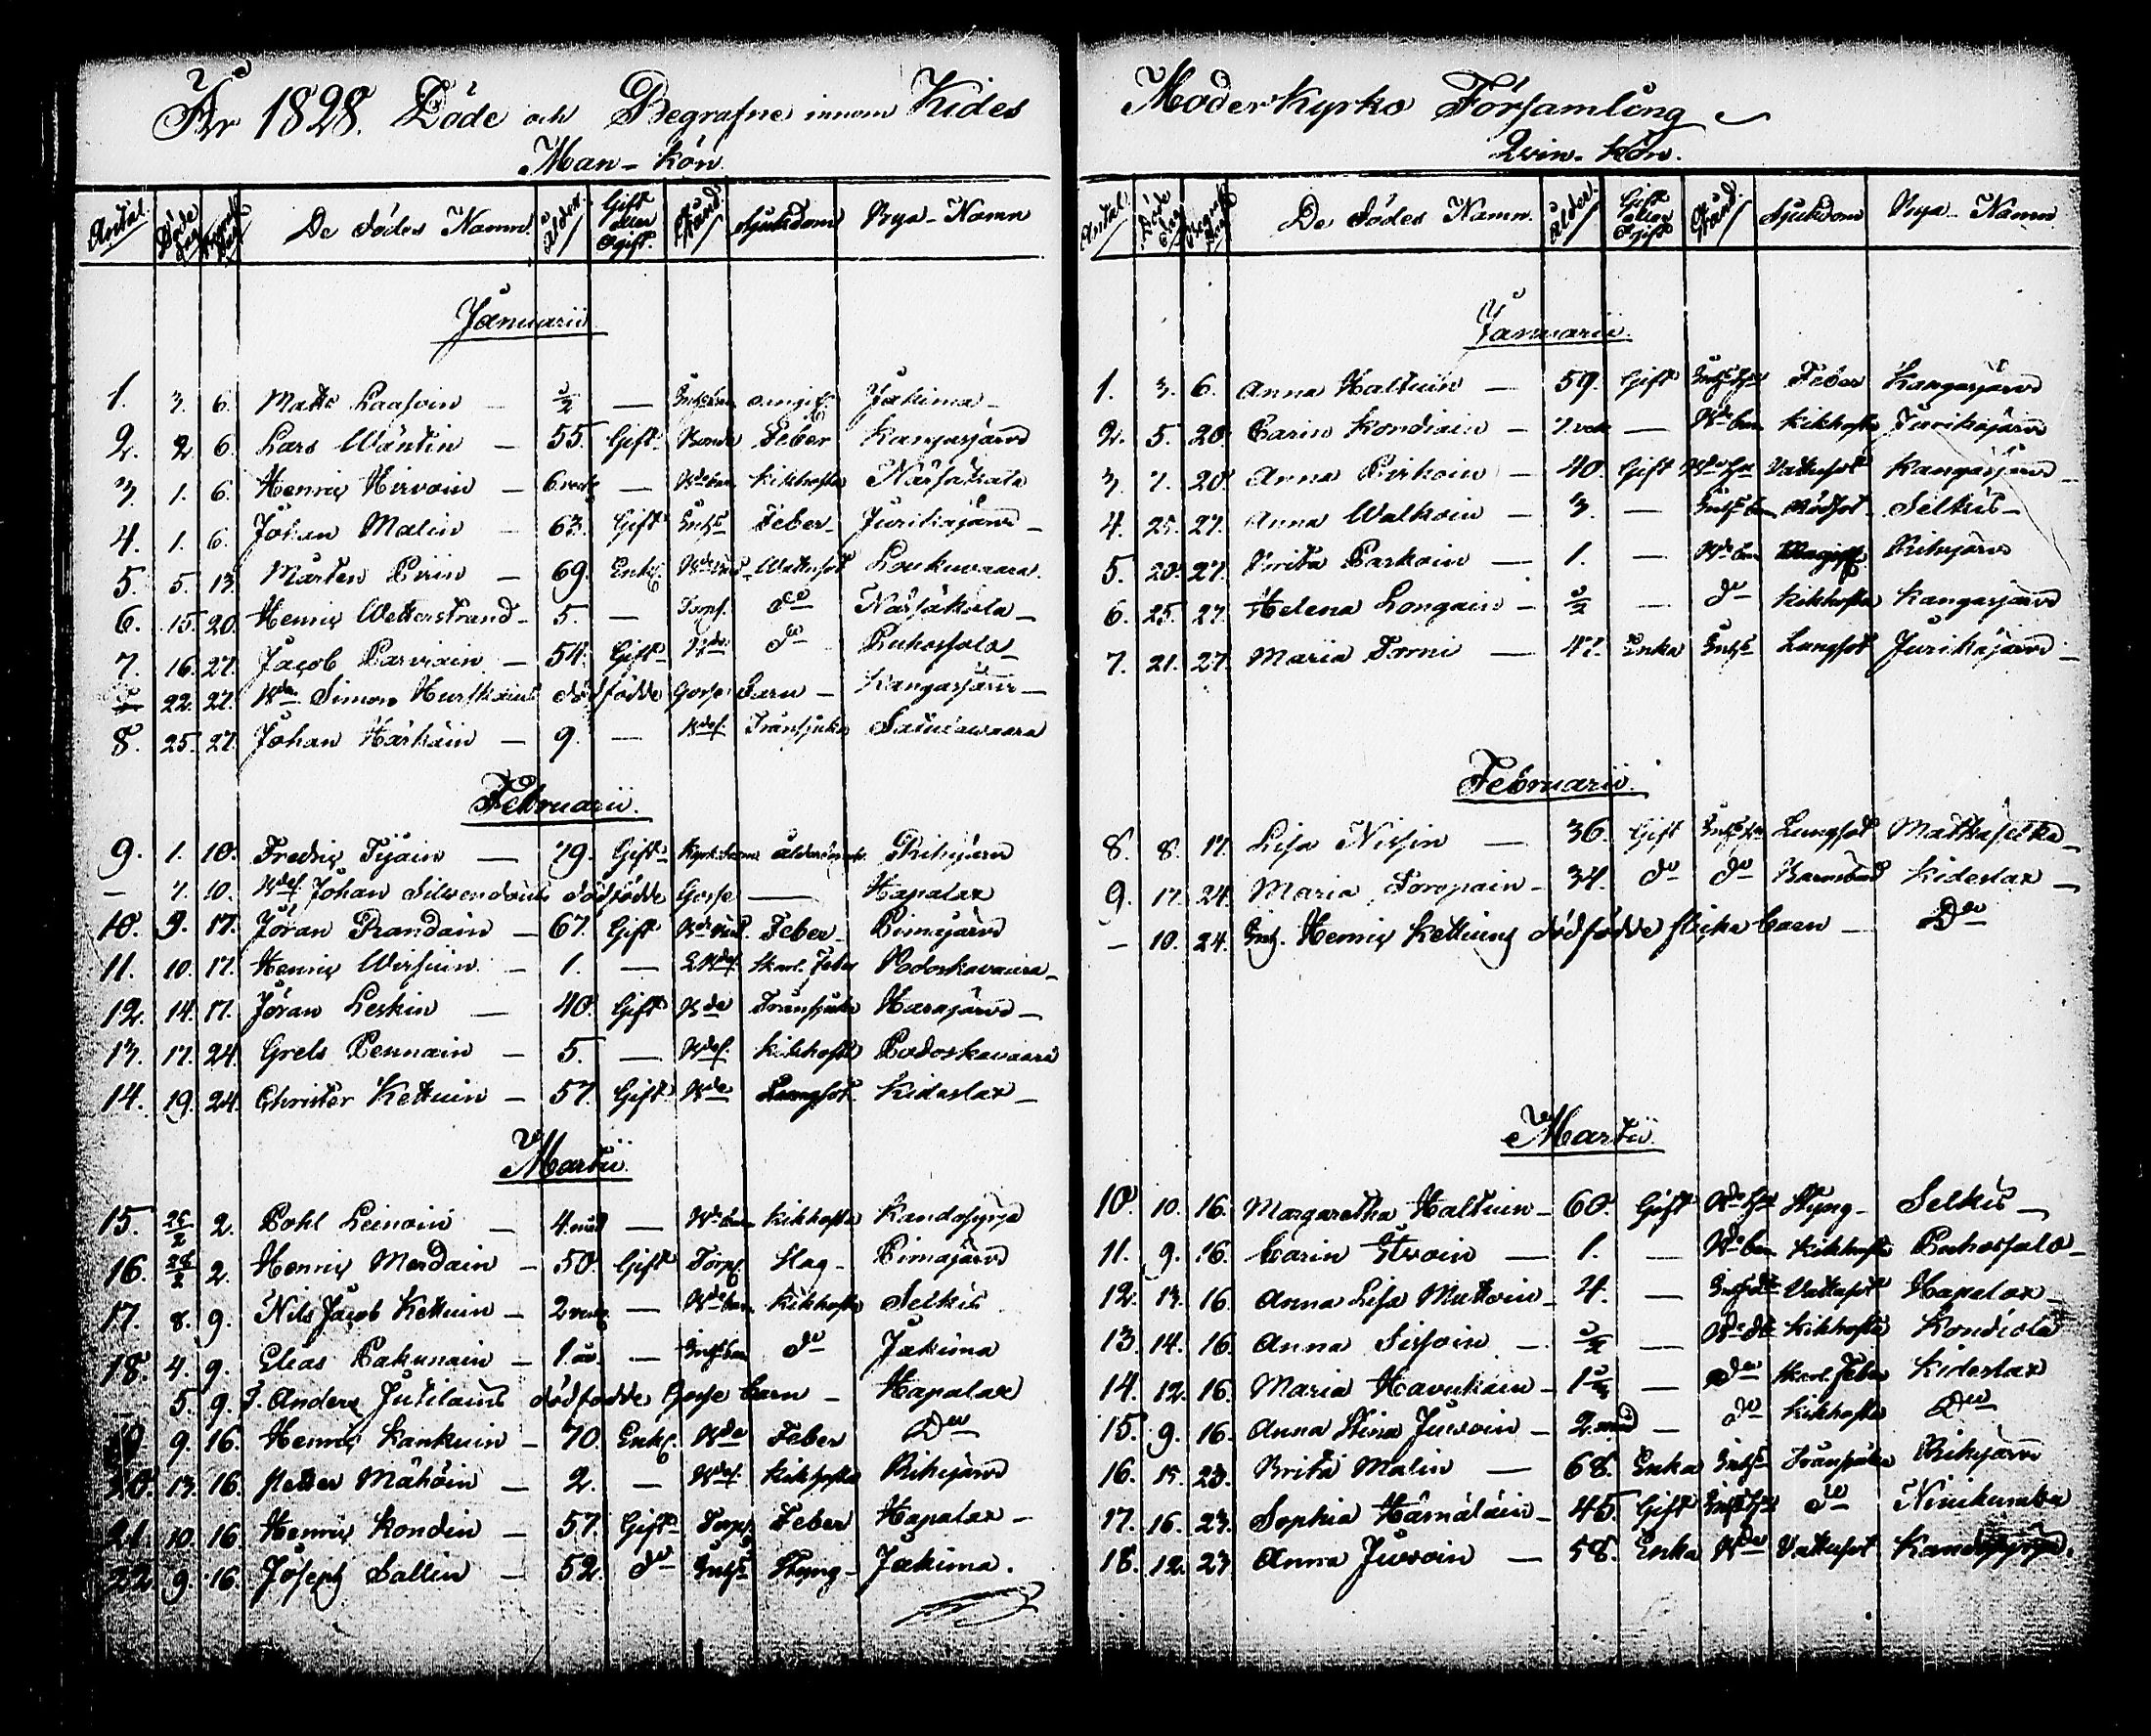 År 1828. Döde och Begrafne innom Kides
Man-kön.
Antal. Döde dag De dödes Namn. Ålder. Gift eller Ogift. Stånd. Sjukdom Bya-Namn
Januarii
1. 3. 6. Matts Laasoin — 1/2 — Jakima
2. 2 6. Lars Wäntin — 55. Gift Bonde Feber Kangasjärvi
3. 1. 6. Henric Hirvoin — 6 veck — Bde barn Kikhosta Närsäkala
4. 1. 6. Johan Malin — 63. Gift Inhs Feber Jurikajärvi
5. 5. 13. Mårten Pirin — 69. Enkl. Wattusot Loukuvaara.
6. 15. 20. Henric Wetterstrand — 5. — Torps. do Närsäkala
7. 16. 27. Jacob Parviain — 54. Gift Bde do Puhossalo
— 22. 27. Bdn Simon Hurskains dödfödde Gosse Barn — Kangasjärvi
8. 25. 27. Johan Härkäin — 9. — Bdes. Tränsjuka
Februarii.
9. 1. 10. Fredric Tijain — 79. Gift Rihijärvi
— 7. 10. Bdes Johan Silvendoins dödfödde Gosse — Hapalax
10. 9. 17. Jöran Prandain — 67. Gift Feber Pirinajärvi
11. 10. 17. Henric Wirsuin — 1. — Skarl. Feber Podoskavaara
12. 14. 17. Jöran Leskin — 40. Gift Bde Tränsjuka Harajärvi
13. 17. 24. Grels Pennain — 5. — Bdes. Kikhosta Podoskavaara
14. 19. 24. Christer Kettuin — 57. Gift Bde Lungsot Kideslax
Martii.
15. 25/2 2. Pohl Leinoin — 4. mån — Bde barn Kikhosta Kandosyrja
16. 28/2 2. Henric Merdain — 50. Gift Torp. Slag Pirinajärvi
17. 8. 9. Nils Jacob Kettuin — 2 veck — Bde barn Kikhosta Selkis
18. 4. 9. Elias Pakunain — 1. år. — Inhs barn do Jakima
— 5. 9. T. Anders Jutilains dödfödde Gosse barn — Hapalax
19. 9. 16. Henric Kankuin — 70. Enkl. Bde Feber Do
20. 13. 16. Petter Mähöin — 2. — Bdes. Kikhosta Rihijärvi
21. 10. 16. Henric Kondin — 57. Gift Torp. Feber Hapalax
22. 9. 16. Joseph Sallin — 52. do Inhs Styng Jakima.
Moderkyrko Församling
Qvin-Kön.
Antal. Döde dag Begraf dag De dödes Namn. Ålder. Gift eller Ogift Stånd. Sjukdom Bya-Namn
Januarii.
1. 3. 6. Anna Haltuin — 59. Gift Inhs hu Feber Kangasjärvi
2. 5. 20. Carin Kondiain — 7. veck — Bde barn Kikhosta Jurikajärvi
3. 7. 20. Anna Pirhoin — 40. Gift Bde hu Vattusot Kangasjärvi
4. 25. 27. Anna Walkoin — 3. — Inhs barn Rödsot Selkis
5. 20. 27. Brita Parkoin — 1. — Bde barn Rihijärvi
6. 25. 27. Helena Longain — 1/2 — do Kikhosta Kangasjärvi
7. 21. 27. Maria Torni — 47. Enka Inhs Lungsot Jurikajärvi
Februarii.
8. 8. 17. Lisa Nissin — 36. Gift Inhs hu Lungsot Matkaselka
9. 17. 24. Maria Toropain — 34. do do Barnsbörd Kideslax
— 10. 24. Inh. Henric Kettuins dödfödde flicke barn — Do
Martii.
10. 10. 16. Margaretha Haltuin — 60. Gift Bde hu Styng Selkis
11. 9. 16. Carin Itvoin — 1. — Bde barn Kikhosta Puhossalo
12. 13. 16. Anna Lisa Mattoin — 4. — Vattusot Hapalax
13. 14. 16. Anna Sissoin — 1/2 — Kikhosta Kondiola
14. 12. 16. Maria Havukain — 1 1/2 — do Skarl. Feber Kideslax
15. 9. 16. Anna Stina Juvoin — 2. mån — do Kikhosta Do
16. 15. 23. Brita Malin — 68. Enka Inhs Tränsjuka Rihijärvi
17. 16. 23. Sophia Hämäläin — 45. Gift Inhs hu do Niinikumbu
18. 12. 23 Anna Juvoin — 58. Enka Bde Vattusot Kandosyrja.